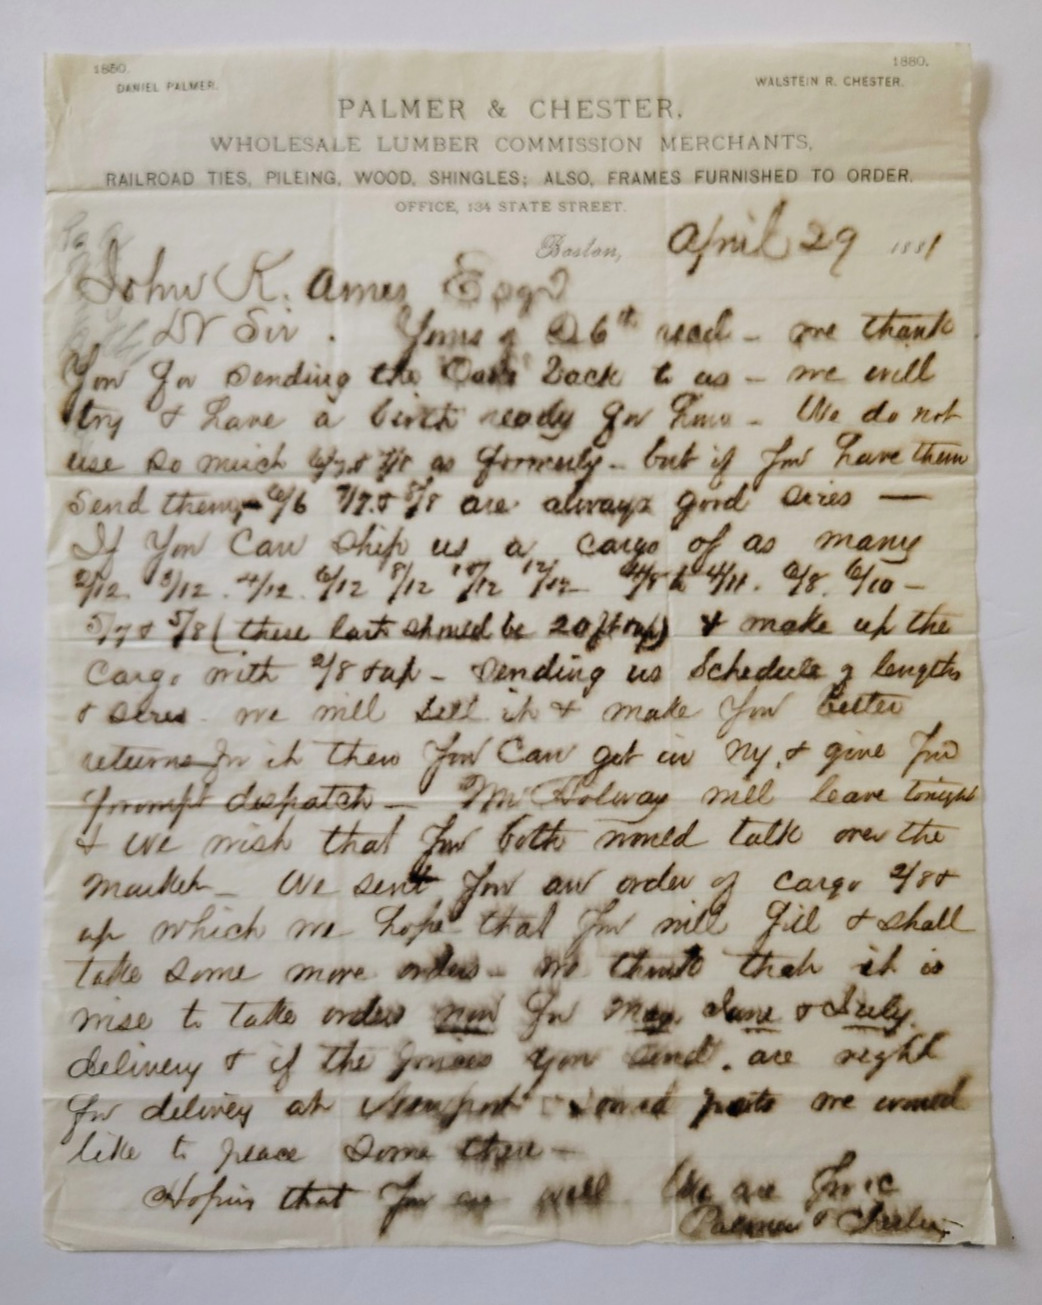 1850. 1880.
DANIEL PALMER. WALSTEIN R. CHESTER.
PALMER & CHESTER,
WHOLESALE LUMBER COMMISSION MERCHANTS,
RAILROAD TIES, PILEING, WOOD, SHINGLES; ALSO, FRAMES FURNISHED TO ORDER.
OFFICE, 134 STATE STREET.
Boston, April 29 1881
John K. Ames Esqr
Dr Sir. Yours of 26th recd - we thank
you for sending the back to us - we will
try & have a birth ready for him - We do not
use so much 6/7 & 7/8 as formerly - but if you have them
send them - 6/6 7/7 & 8/8 are always good sizes —
If you can ship us a cargo of as many
2/12 3/12 4/12 6/12 8/12 10/12 12/12 4/11. 6/8. 6/10 -
5/7 & 5/8 (these last should be 20 ft & up) & make up the
cargo with 2/8 & up - sending us schedule of lengths
& sizes we will sell it & make you better
returns for it then you can get in NY, & give you
prompt dispatch — Mr Holway will leave tonight
& we wish that you both would talk over the
market - We sent you an order of cargo 2/8 &
up which we hope that you will fill & shall
take some more orders - we think that it is
wise to take orders now for May June & July
delivery & if the prices you send. are right
for delivery at Newport & Sound ports we would
like to peace some there —
Hoping that you are well We are Yours
Palmer & Chester